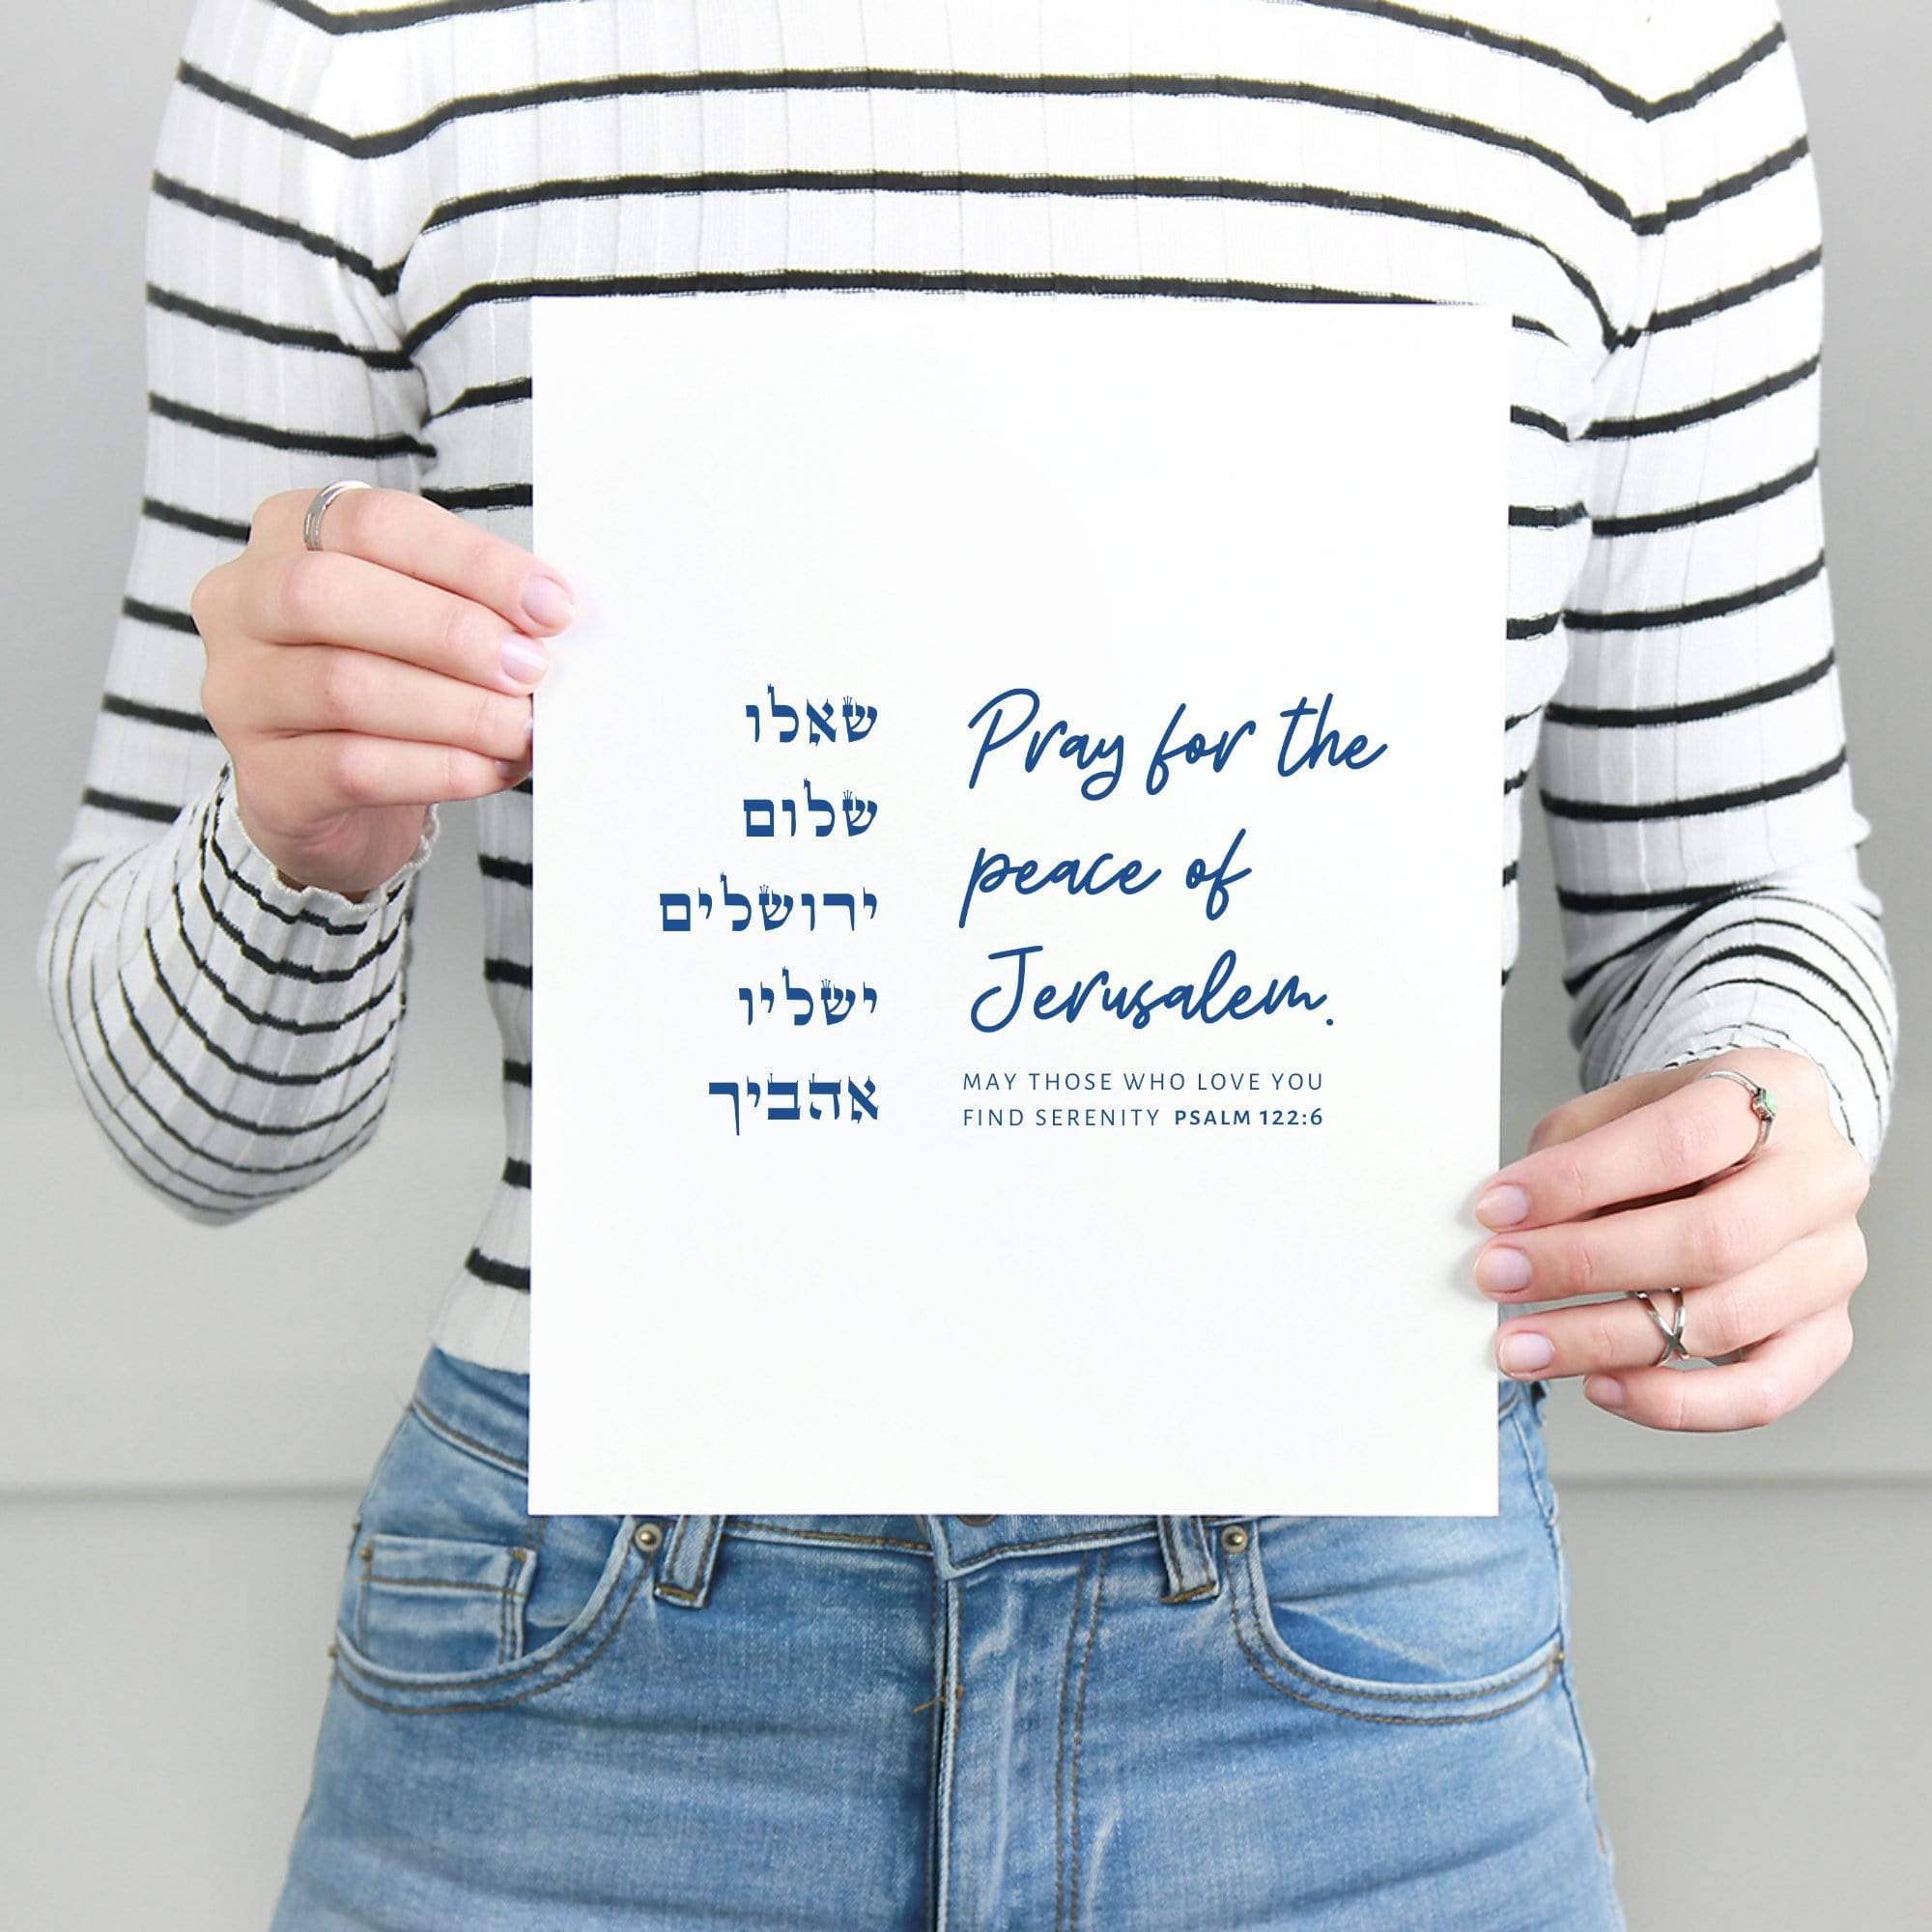 שאלו
שלום
ירושלים
ישליו
אהביך
Pray for the
peace of
Jerusalem.
MAY THOSE WHO LOVE YOU
FIND SERENITY PSALM 122:6